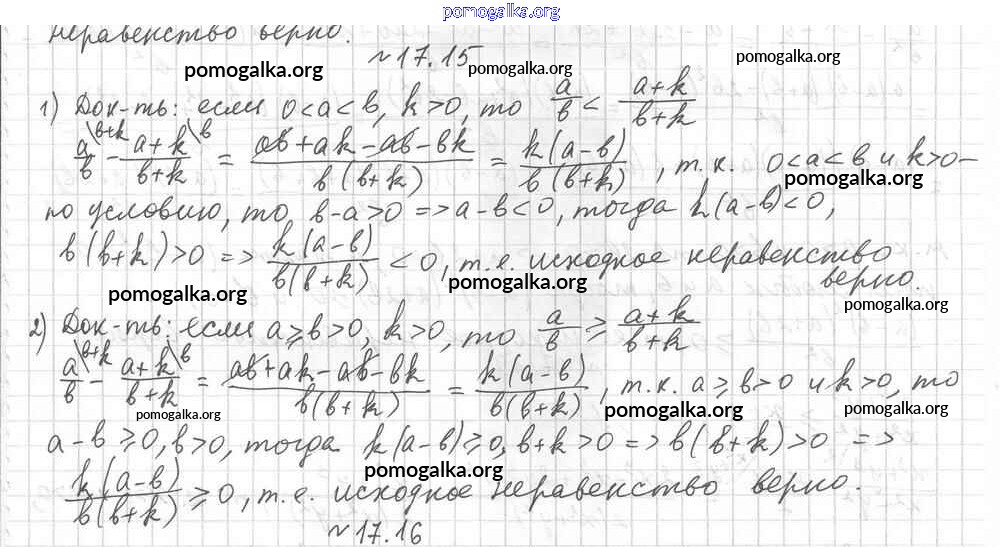 pomogalka.org
неравенство верно.
№17.15
pomogalka.org pomogalka.org pomogalka.org
1) Док-ть: если 0<a<b, k>0, то a/b < (a+k)/(b+k)
a/b \b+k - (a+k)/(b+k) \b = (ab+ak-ab-bk)/(b(b+k)) = k(a-b)/(b(b+k)), т.к. 0<a<b и k>0-
pomogalka.org
по условию, то b-a>0 => a-b<0, тогда k(a-b)<0,
b(b+k)>0 => k(a-b)/(b(b+k)) <0, т.е. исходное неравенство
верно.
pomogalka.org pomogalka.org
2) Док-ть: если a⩾b>0, k>0, то a/b ⩾ (a+k)/(b+k)
a/b \b+k - (a+k)/(b+k) \b = (ab+ak-ab-bk)/(b(b+k)) = k(a-b)/(b(b+k)), т.к. a⩾b>0 и k>0, то
pomogalka.org pomogalka.org pomogalka.org
a-b⩾0, b>0, тогда k(a-b)⩾0, b+k>0 => b(b+k)>0 =>
pomogalka.org
k(a-b)/(b(b+k)) ⩾0, т.е. исходное неравенство верно.
№17.16